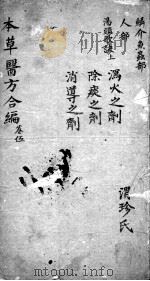 鱗介魚蟲部
人部
湯頭歌訣上
瀉火之劑
除痰之劑
消導之劑
本草醫方合編 卷伍
漢珍氏